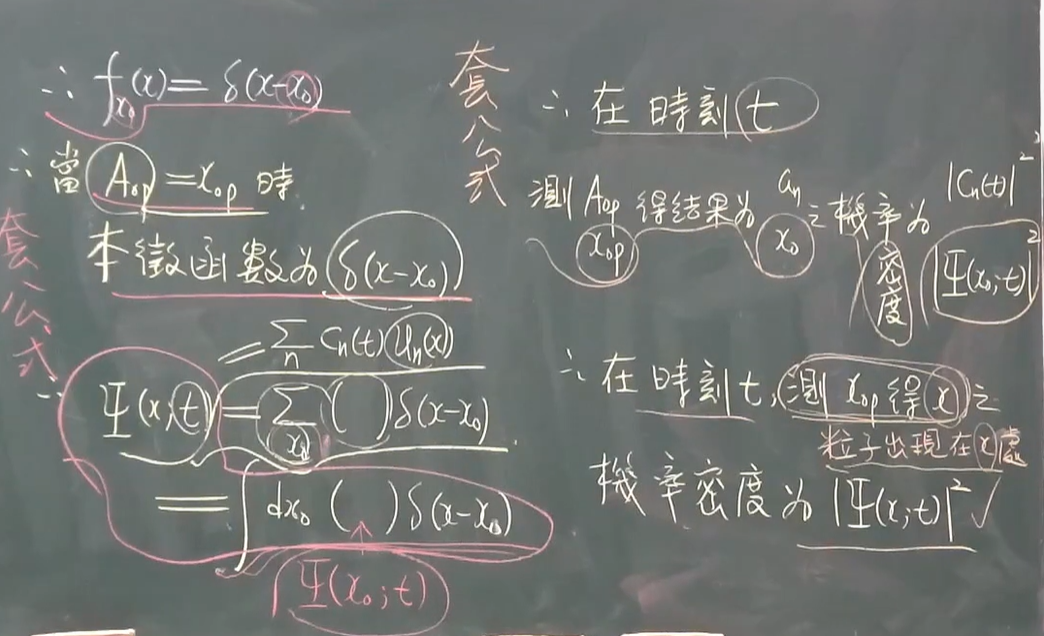 ∴ f_{x₀}(x) = δ(x-x₀)
∴ 當 A_op = x_op 時
本徵函數為 δ(x-x₀)
= Σ_n C_n(t) U_n(x)
∴ Ψ(x;t) = Σ_{x₀} ( ) δ(x-x₀)
= ∫ dx₀ ( ) δ(x-x₀)
Ψ(x₀;t)
套公式
套公式
∴ 在時刻 t
測 A_op 得結果為 a_n 之機率為 |C_n(t)|²
x_op x₀ 密度 |Ψ(x₀;t)|²
∴ 在時刻 t, 測 x_op 得 x 之
粒子出現在 x 處
機率密度為 |Ψ(x;t)|² ✓